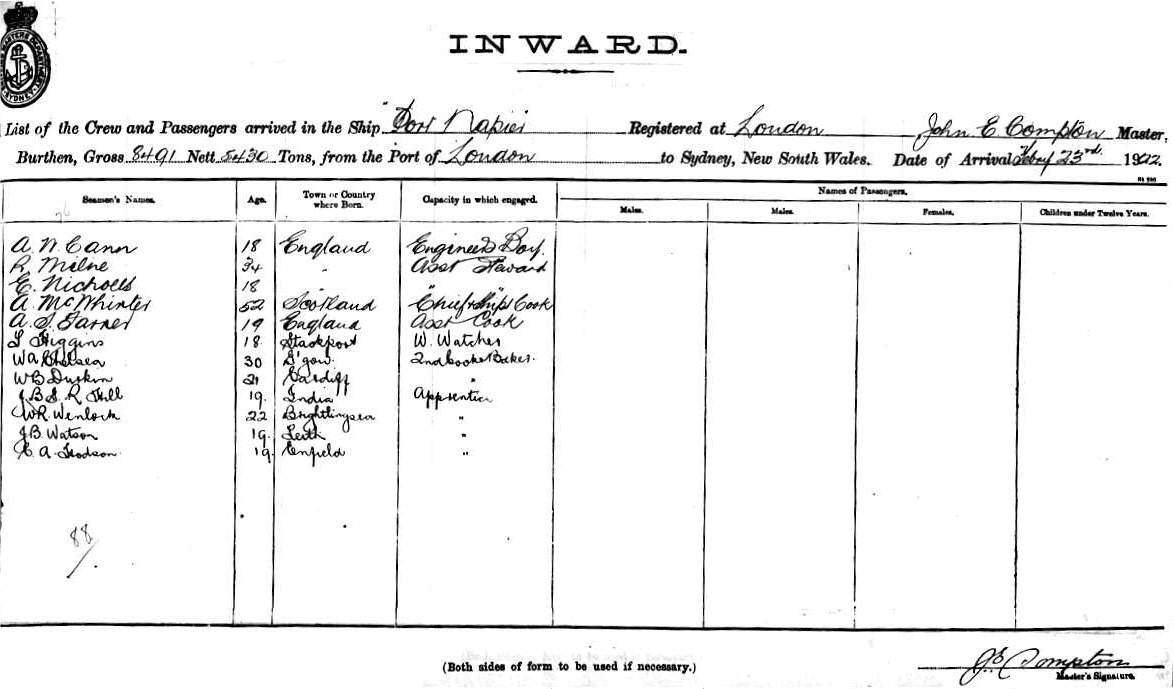 INWARD.
List of the Crew and Passengers arrived in the Ship "Port Napier Registered at London John E Compton Master,
Burthen, Gross 8491 Nett 5430 Tons, from the Port of London to Sydney, New South Wales. Date of Arrival Feby 23rd 1922.
Seamen's Names. Age. Town or Country where Born. Capacity in which engaged. Names of Passengers.
Males. Males. Females. Children under Twelve Years.
A. N. Cann 18 England Engineers Boy.
R. Milne 34 " Asst Steward
E. Nicholls 18 " "
A. McWhirter 52 Scotland Chief & Ships Cook
A. S. Farner 19 England Asst Cook
Higgins 18. Stockport W. Watcher
W A Chelsea 30 G'gow. 2nd Cook & Baker.
W B Durkin 21 Cardiff "
J. B. S. R. Hill 19. India Apprentice
W R. Wenlock 22 Brightlingsea "
J. B. Watson 19. Leith "
A. Hodson. 19. Enfield "
88
(Both sides of form to be used if necessary.)
J E Compton
Master's Signature.